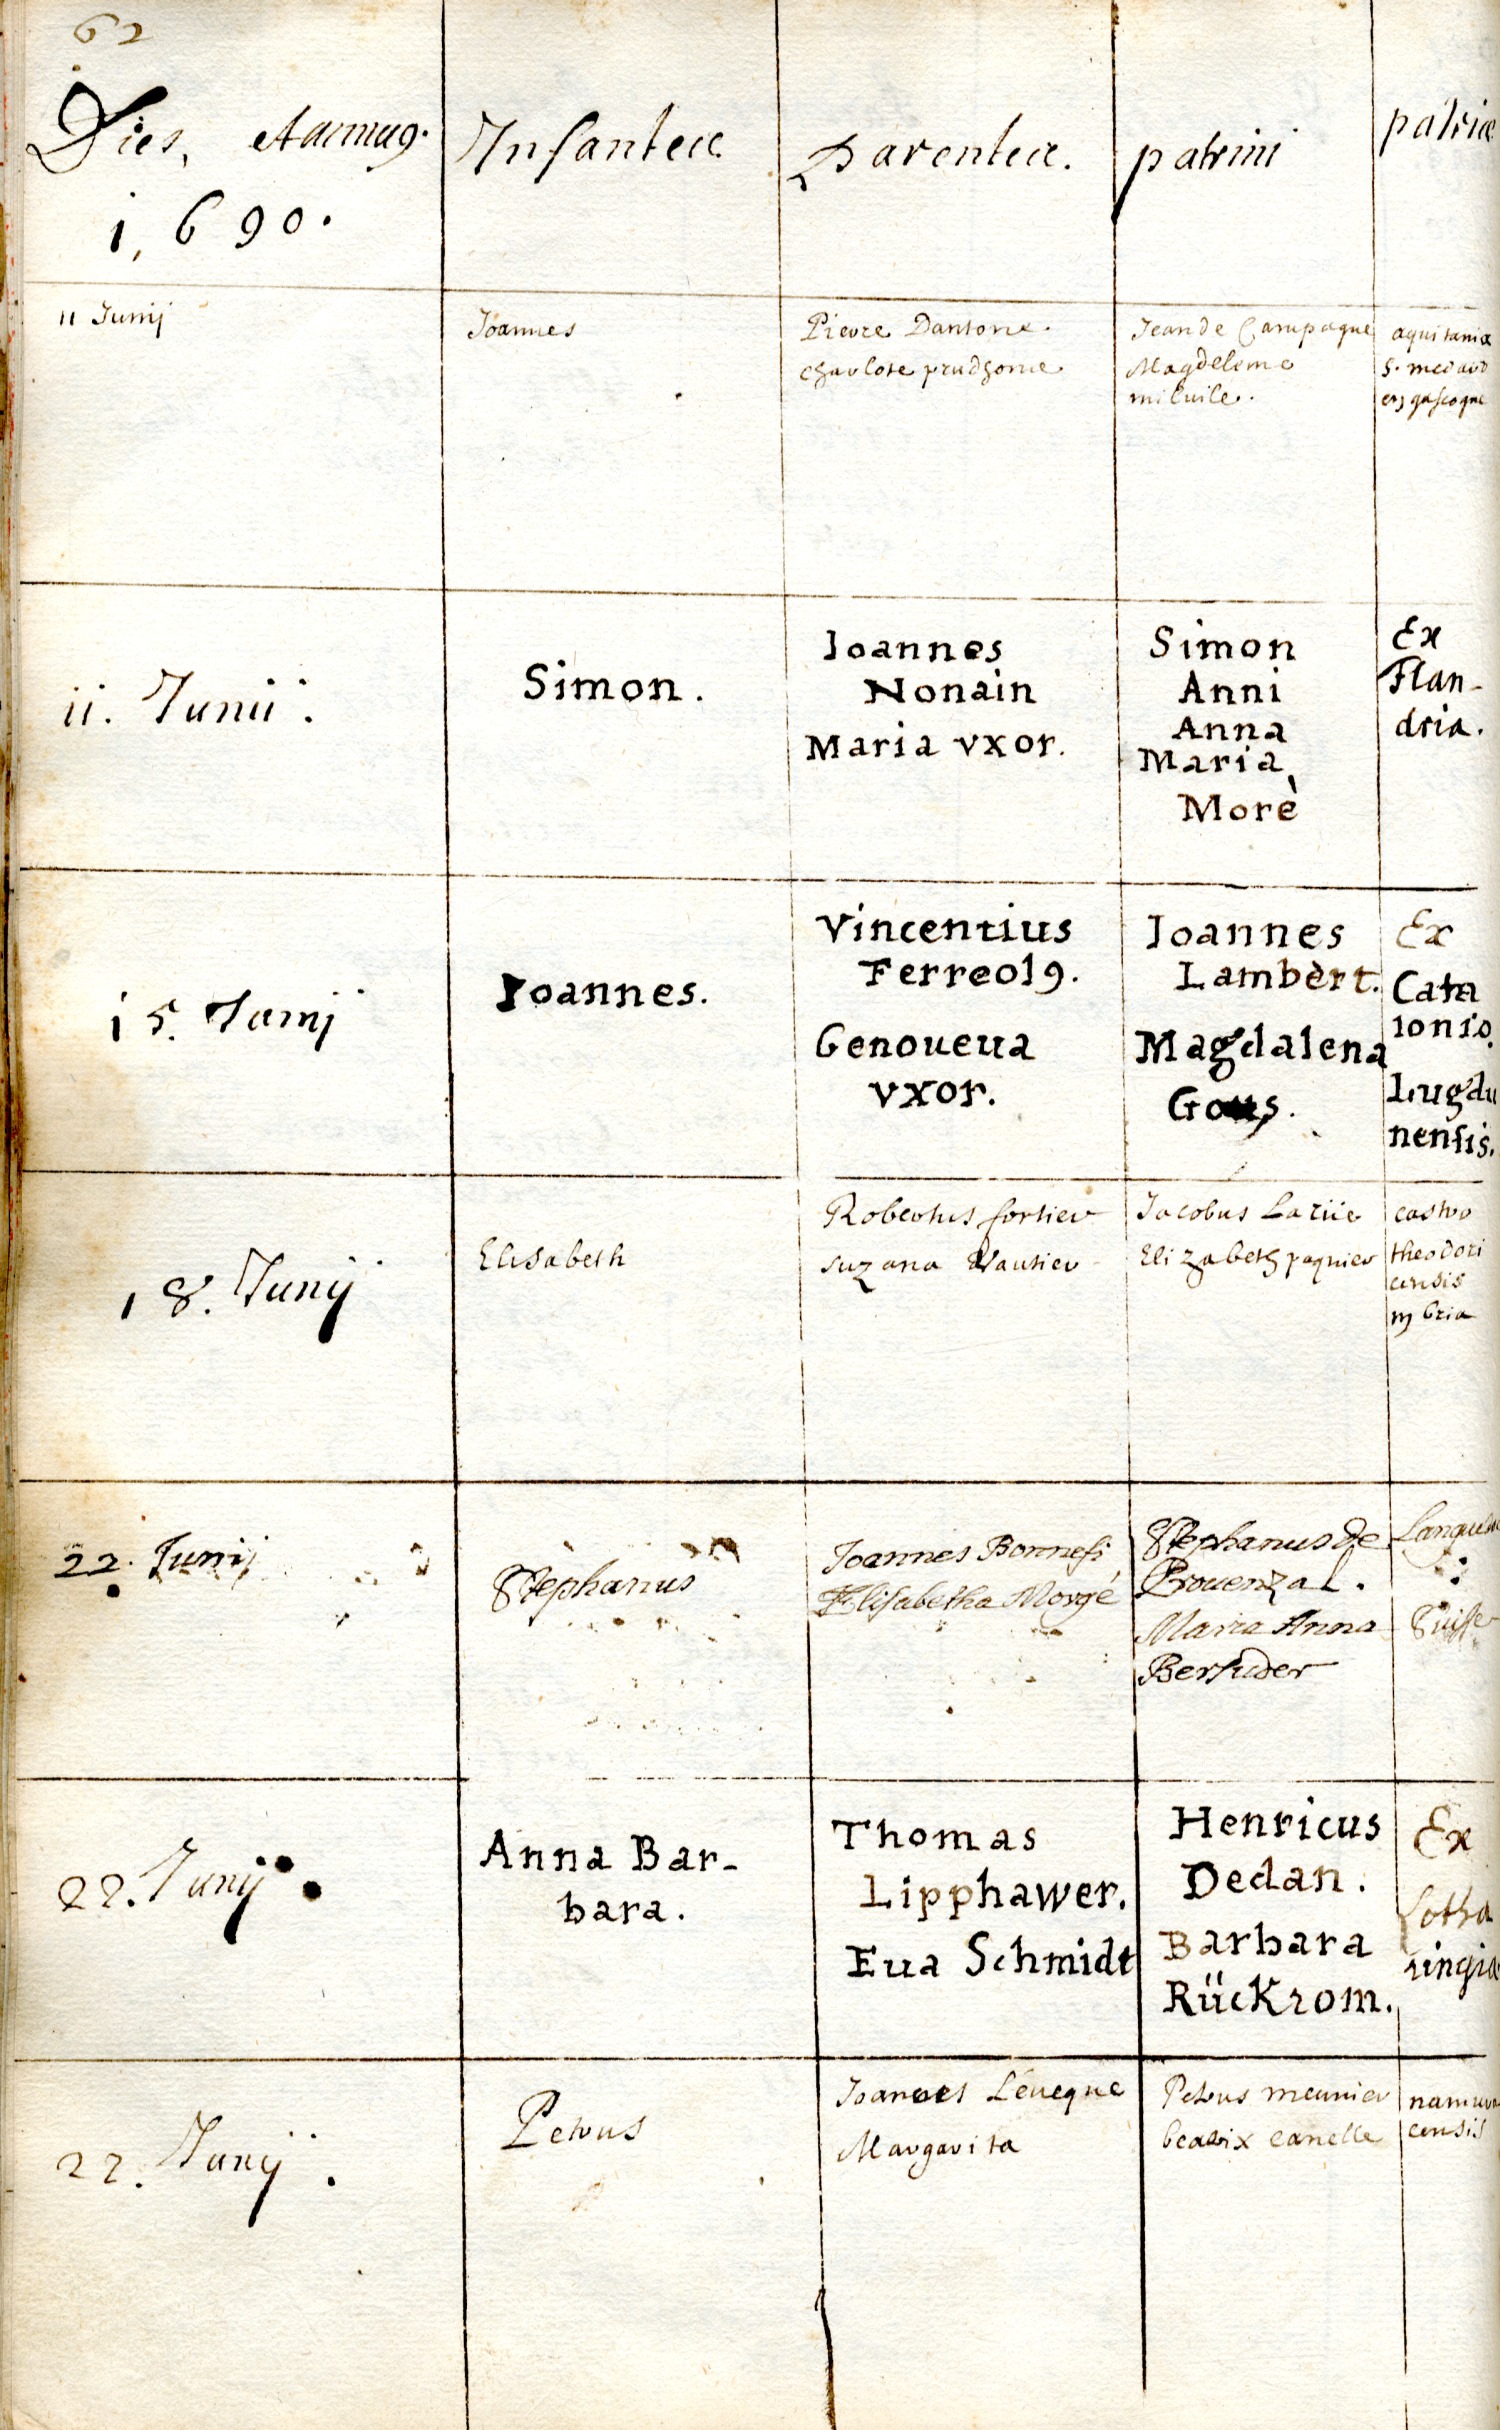 62
Dies, et annus. Infantes. Parentes. patrini patria
1,690.
11 Junij
Joannes
Pierre Dantone.
charlote prudhome
Jean de Campagne
Magdeleine
miluile.
aquitania
s. medard
en gascogne
ii. Junii.
Simon.
Ioannes
Nonain
Maria vxor.
Simon
Anni
Anna
Maria
Morè
Ex
Flan-
dria.
15. Junij
Ioannes.
Vincentius
Ferreol9.
Genoueua
vxor.
Ioannes
Lambèrt.
Magdalena
Ex
Cata
lonia.
Lugdu
nensis.
18. Junij
Elisabeth
Robertus fortier
suzana Vautier
Jacobus Larüe
Elizabeth paquier
castro
theodori
censis
in bria
22. Junij
Stephanus
Joannes Bonnefi
Elisabetha Morgé
Stephanus de
Prouenzal.
Maria Anna
Languedoc
Suisse
22. Junij.
Anna Bar-
bara.
Thomas
Lipphawer.
Eua Schmidt
Henricus
Dedan.
Barbara
Rückrom.
Ex
Lotha
ringia
22. Junij.
Petrus
Joannes Léueque
Margarita
Petrus meunier
beatrix canelle
namur
censis